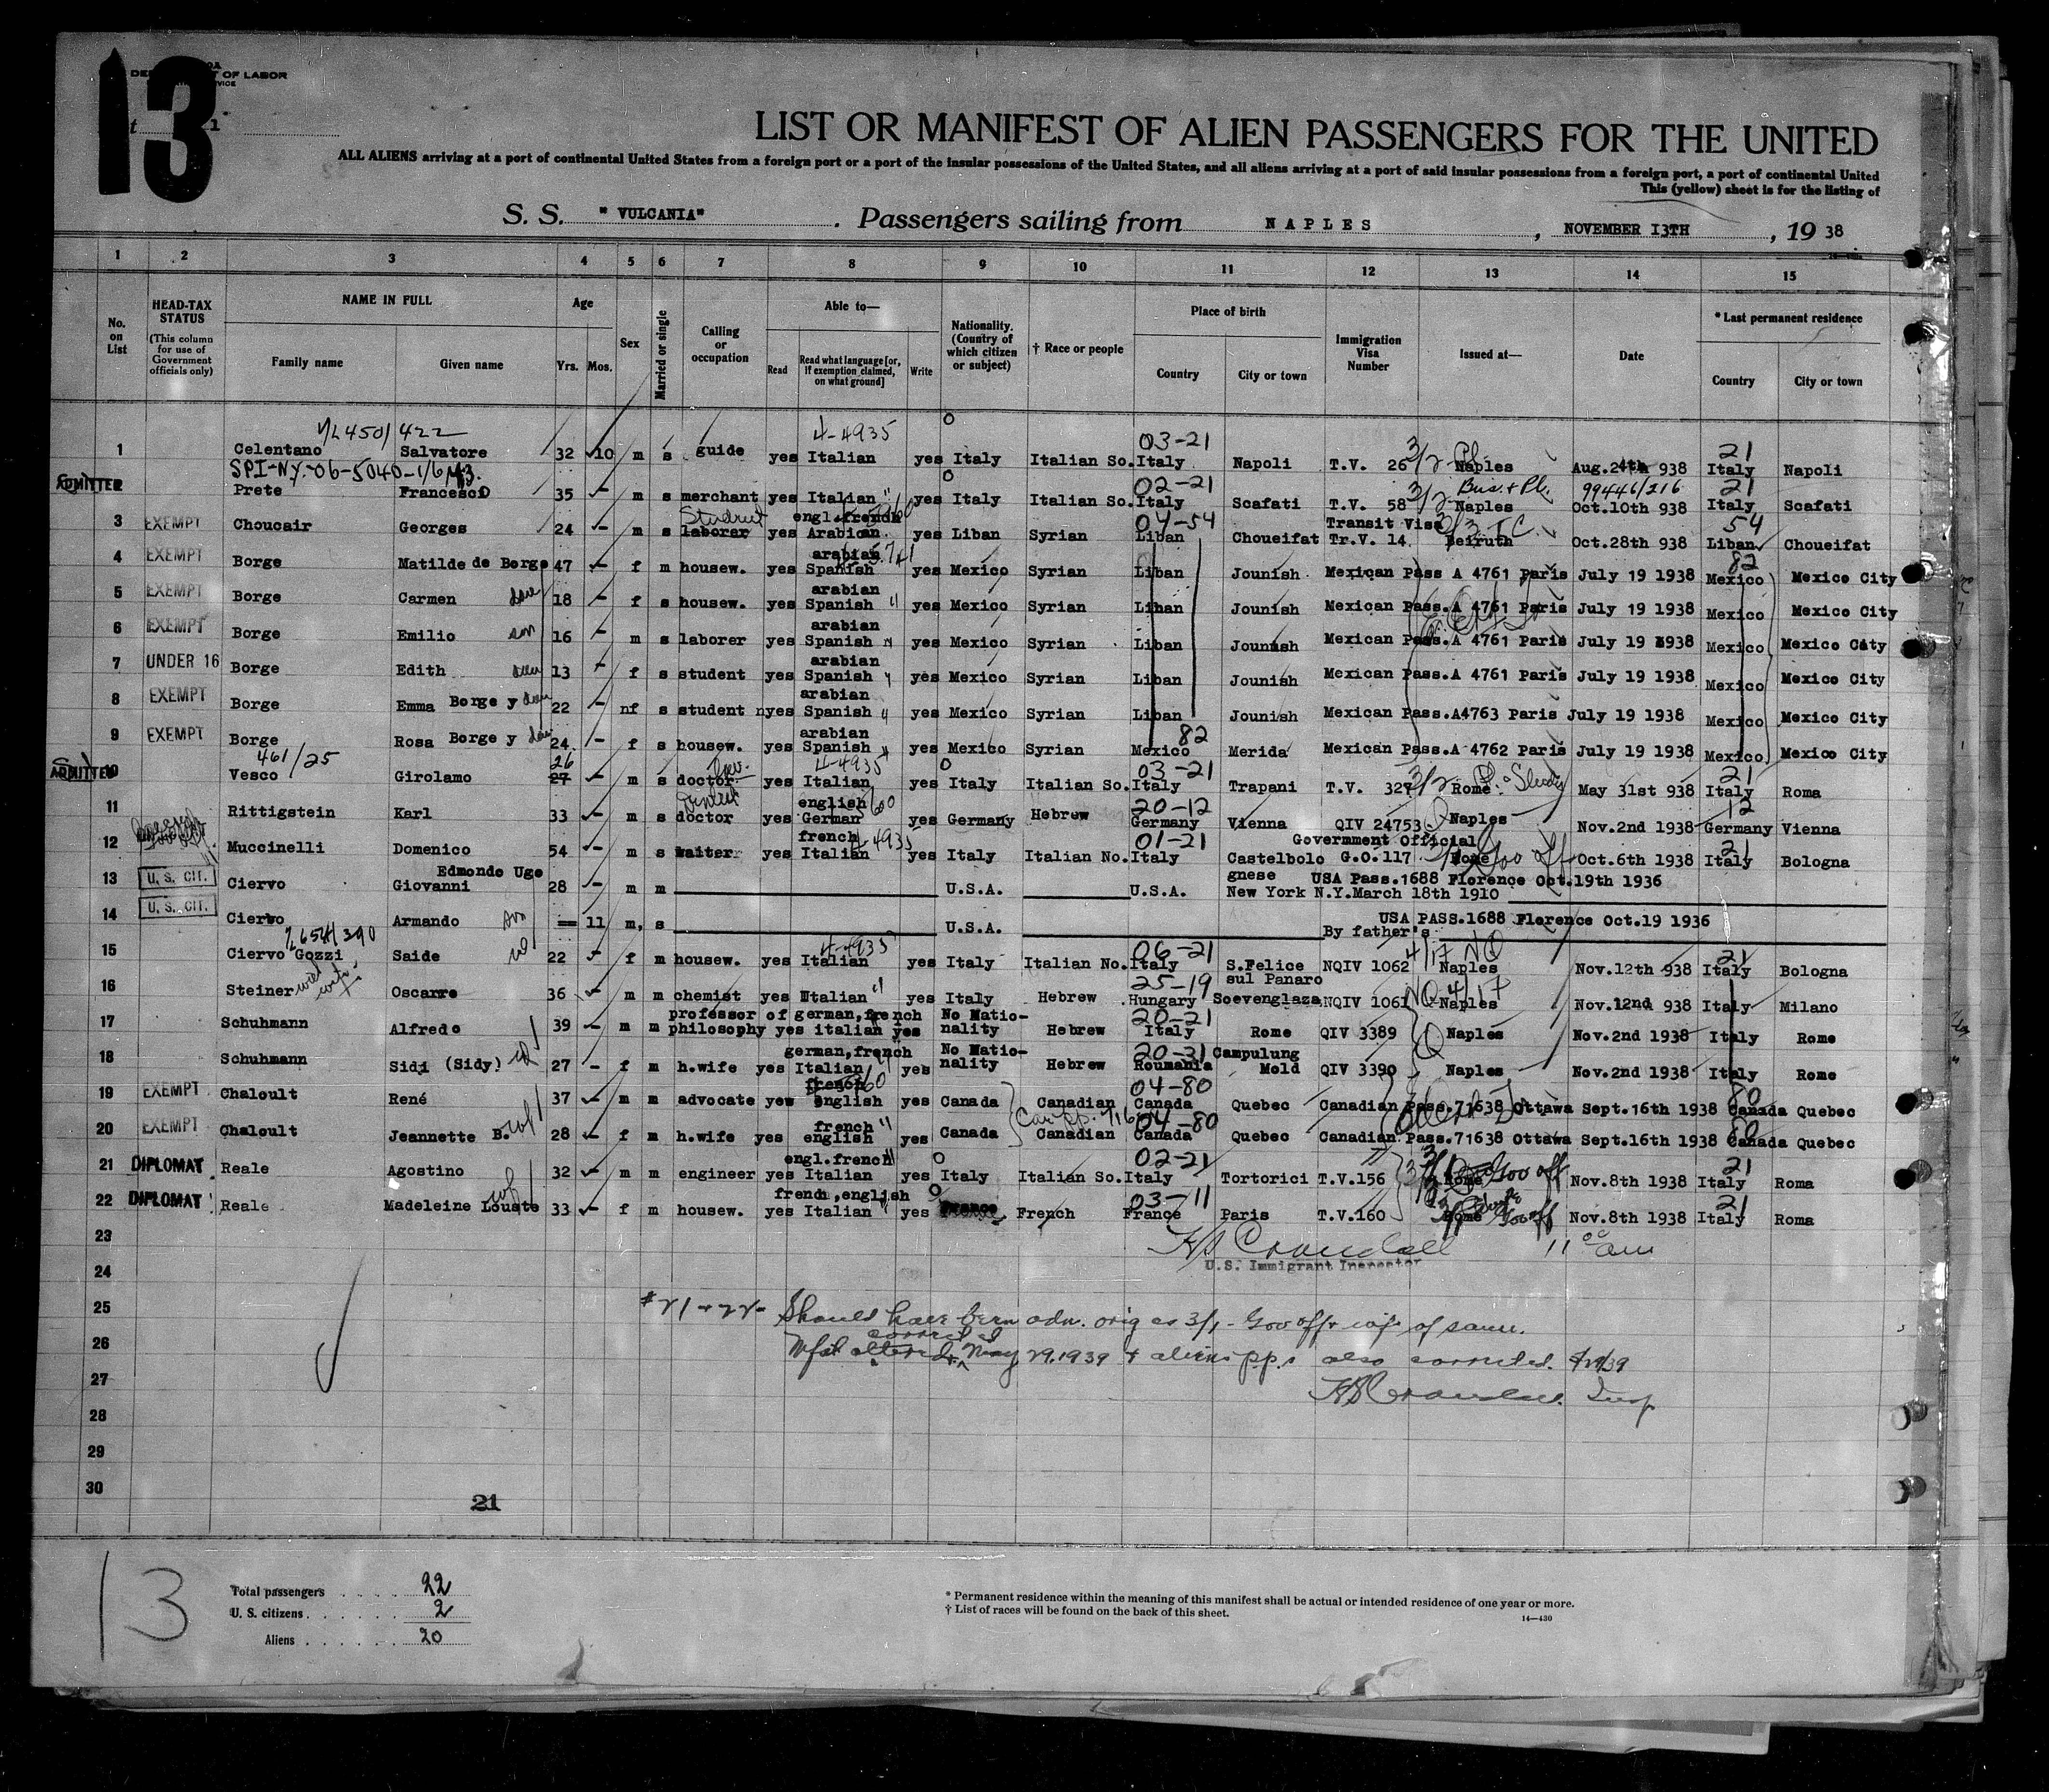 13
DEPARTMENT OF LABOR
LIST OR MANIFEST OF ALIEN PASSENGERS FOR THE UNITED
ALL ALIENS arriving at a port of continental United States from a foreign port or a port of the insular possessions of the United States, and all aliens arriving at a port of said insular possessions from a foreign port, a port of continental United
This (yellow) sheet is for the listing of
S. S. " VULCANIA" . Passengers sailing from NAPLES , NOVEMBER 13TH , 19 38
1 2 3 4 5 6 7 8 9 10 11 12 13 14 15
No. on List
HEAD-TAX STATUS (This column for use of Government officials only)
NAME IN FULL
Family name Given name
Age
Yrs. Mos.
Sex
Married or single
Calling or occupation
Able to—
Read Read what language [or, if exemption claimed, on what ground] Write
Nationality. (Country of which citizen or subject)
† Race or people
Place of birth
Country City or town
Immigration Visa Number
Issued at—
Date
* Last permanent residence
Country City or town
4-4935 03-21 21
1 Celentano Salvatore 32 10 m s guide yes Italian yes Italy Italian So. Italy Napoli T.V. 26 3/2 Pl. Naples Aug. 24th 938 Italy Napoli
SPI-NY-06-5040-1/6/43.
02-21 Bus. + Pl. 99446/216 21
ADMITTED 2 Prete Francesco 35 m s merchant yes Italian " yes Italy Italian So. Italy Scafati T.V. 58 3/2 Naples Oct.10th 938 Italy Scafati
Student engl.french 04-54 Transit Visa 54
3 EXEMPT Choucair Georges 24 - m s laborer yes Arabian yes Liban Syrian Liban Choueifat Tr.V. 14 Beiruth Oct.28th 938 Liban Choueifat
arabian 82
4 EXEMPT Borge Matilde de Borge 47 f m housew. yes Spanish yes Mexico Syrian Liban Jounish Mexican Pass A 4761 Paris July 19 1938 Mexico Mexico City
arabian
5 EXEMPT Borge Carmen dau 18 - f s housew. yes Spanish " yes Mexico Syrian Liban Jounish Mexican Pass.A 4761 Paris July 19 1938 Mexico Mexico City
arabian
6 EXEMPT Borge Emilio son 16 - m s laborer yes Spanish " yes Mexico Syrian Liban Jounish Mexican Pass.A 4761 Paris July 19 1938 Mexico Mexico City
arabian
7 UNDER 16 Borge Edith dau 13 - f s student yes Spanish " yes Mexico Syrian Liban Jounish Mexican Pass.A 4761 Paris July 19 1938 Mexico Mexico City
arabian
8 EXEMPT Borge Emma Borge y dau 22 - f s student yes Spanish " yes Mexico Syrian Liban Jounish Mexican Pass.A4763 Paris July 19 1938 Mexico Mexico City
arabian 82
9 EXEMPT Borge Rosa Borge y dau 24 - f s housew. yes Spanish " yes Mexico Syrian Mexico Merida Mexican Pass.A 4762 Paris July 19 1938 Mexico Mexico City
461/25 26 4-4935 03-21 21
ADMITTED 10 Vesco Girolamo 27 m s doctor law. yes Italian yes Italy Italian So. Italy Trapani T.V. 327 3/2 Rome Pl. Study May 31st 938 Italy Roma
dentist english 600 20-12 12
11 Rittigstein Karl 33 m s doctor yes German yes Germany Hebrew Germany Vienna QIV 24753 Q Naples Nov.2nd 1938 Germany Vienna
french 4935 01-21 Government Official 21
12 Muccinelli Domenico 54 m s waiter yes Italian yes Italy Italian No. Italy Castelbolo G.O.117 Rome Oct.6th 1938 Italy Bologna
Edmondo Ugo gnese USA Pass.1688 Florence Oct.19th 1936
13 U. S. CIT. Ciervo Giovanni 28 m m U.S.A. U.S.A. New York N.Y.March 18th 1910
USA PASS.1688 Florence Oct.19 1936
14 U. S. CIT. Ciervo Armando son 11 m, s U.S.A. By father's
4-4935 06-21 4/17 NQ 21
15 Ciervo Gozzi Saide 22 - f m housew. yes Italian yes Italy Italian No. Italy S.Felice sul Panaro NQIV 1062 Naples Nov.12th 938 Italy Bologna
25-19 NQ 4/17
16 Steiner Oscarre 36 m m chemist yes Italian " yes Italy Hebrew Hungary Soevenglaza NQIV 1061 Naples Nov.12nd 938 Italy Milano
professor of german,french No Natio- 20-21
17 Schuhmann Alfredo 39 m m philosophy yes italian yes nality Hebrew Italy Rome QIV 3389 Q Naples Nov.2nd 1938 Italy Rome
german,french No Natio- 20-31 Campulung
18 Schuhmann Sidi (Sidy) 27 - f m h.wife yes Italian yes nality Hebrew Roumania Mold QIV 3390 Naples Nov.2nd 1938 Italy Rome
french 04-80 80
19 EXEMPT Chaloult René 37 m m advocate yes english yes Canada Canadian Canada Quebec Canadian Pass.71638 Ottawa Sept.16th 1938 Canada Quebec
french 04-80 80
20 EXEMPT Chaloult Jeannette B. wf 28 f m h.wife yes english yes Canada Canadian Canada Quebec Canadian Pass.71638 Ottawa Sept.16th 1938 Canada Quebec
engl.french 02-21 21
21 DIPLOMAT Reale Agostino 32 m m engineer yes Italian yes Italy Italian So. Italy Tortorici T.V.156 Rome Gov off Nov.8th 1938 Italy Roma
french,english 03-11 21
22 DIPLOMAT Reale Madeleine Louste wf 33 f m housew. yes Italian " yes France French France Paris T.V.160 Rome Gov off Nov.8th 1938 Italy Roma
23 HS Crandall 11 00 am
U.S. Immigrant Inspector
24
25 #21 + 22- Should have been adm. orig as 3/1 - Gov off + wife of same.
26 Mfst altered corrected May 29.1939 + aliens pp.s also corrected. 5/29/39
27 HS Crandall. Insp
28
29
30
21
13
Total passengers 22
U. S. citizens 2
Aliens 20
* Permanent residence within the meaning of this manifest shall be actual or intended residence of one year or more.
† List of races will be found on the back of this sheet.
14—430